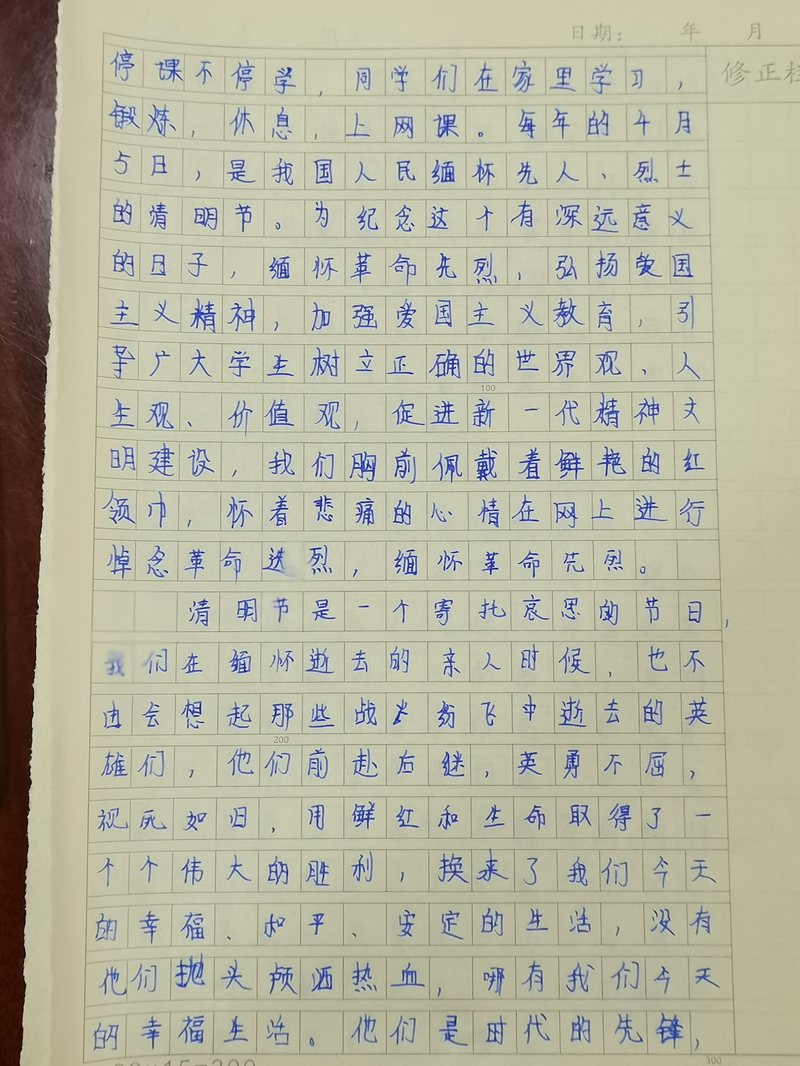 日期： 年 月
修正栏
停课不停学，同学们在家里学习，
锻炼，休息，上网课。每年的4月
5日，是我国人民缅怀先人、烈士
的清明节。为纪念这个有深远意义
的日子，缅怀革命先烈，弘扬爱国
主义精神，加强爱国主义教育，引
导广大学生树立正确的世界观、人
100
生观、价值观，促进新一代精神文
明建设，我们胸前佩戴着鲜艳的红
领巾，怀着悲痛的心情在网上进行
悼念革命选烈，缅怀革命先烈。
清明节是一个寄托哀思的节日，
我们在缅怀逝去的亲人时候，也不
由会想起那些战火纷飞中逝去的英
200
雄们，他们前赴后继，英勇不屈，
视死如归，用鲜红和生命取得了一
个个伟大的胜利，换来了我们今天
的幸福、和平、安定的生活，没有
他们抛头颅洒热血，哪有我们今天
的幸福生活。他们是时代的先锋，
300
20×15=300